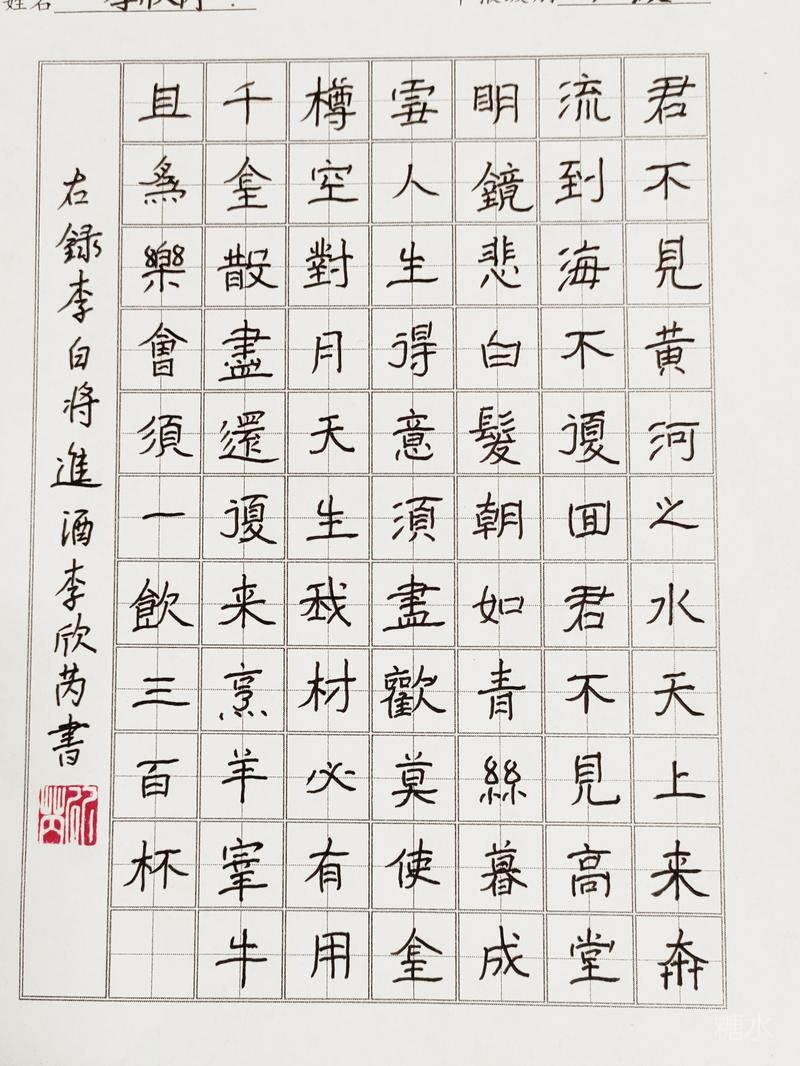 姓名
君不見黄河之水天上来奔
流到海不復回君不見高堂
明鏡悲白髮朝如青絲暮成
雪人生得意須盡歡莫使金
樽空對月天生我材必有用
千金散盡還復来烹羊宰牛
且爲樂會須一飲三百杯
右録李白将進酒李欣芮書
糖水